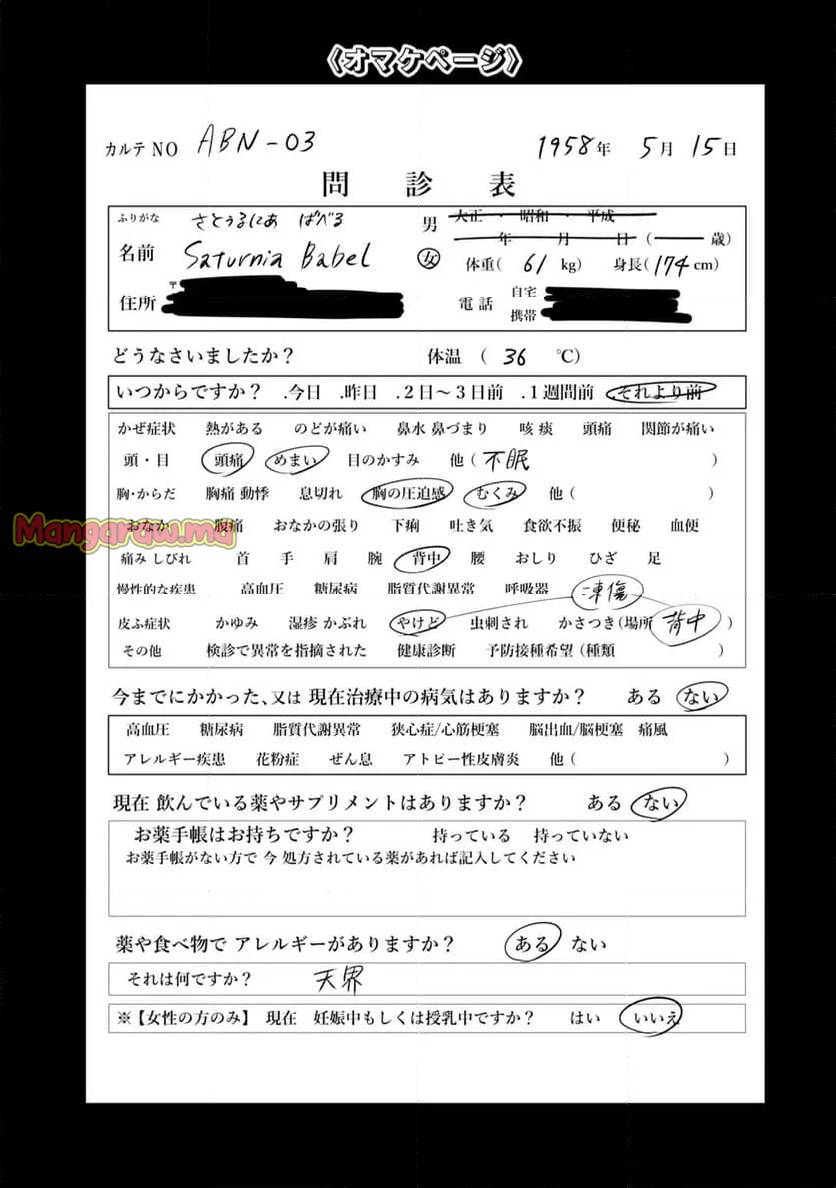 《オマケページ》
カルテNO ABN-03 1958年 5月 15日
問診表
ふりがな さとぅるにあ ばべる
名前 Saturnia Babel
男 女
大正・昭和・平成
年 月 日 ( 歳)
体重( 61 kg) 身長(174cm)
住所 〒
電話 自宅
携帯
どうなさいましたか? 体温 ( 36 ℃)
いつからですか? .今日 .昨日 .2日～3日前 .1週間前 .それより前
かぜ症状 熱がある のどが痛い 鼻水 鼻づまり 咳 痰 頭痛 関節が痛い
頭・目 頭痛 めまい 目のかすみ 他(不眠 )
胸・からだ 胸痛 動悸 息切れ 胸の圧迫感 むくみ 他( )
おなか 腹痛 おなかの張り 下痢 吐き気 食欲不振 便秘 血便
Mangaraw.ma
痛み しびれ 首 手 肩 腕 背中 腰 おしり ひざ 足
慢性的な疾患 高血圧 糖尿病 脂質代謝異常 呼吸器 凍傷
皮ふ症状 かゆみ 湿疹 かぶれ やけど 虫刺され かさつき(場所 背中 )
その他 検診で異常を指摘された 健康診断 予防接種希望(種類 )
今までにかかった、又は 現在治療中の病気はありますか? ある ない
高血圧 糖尿病 脂質代謝異常 狭心症/心筋梗塞 脳出血/脳梗塞 痛風
アレルギー疾患 花粉症 ぜん息 アトピー性皮膚炎 他( )
現在 飲んでいる薬やサプリメントはありますか? ある ない
お薬手帳はお持ちですか? 持っている 持っていない
お薬手帳がない方で 今 処方されている薬があれば記入してください
薬や食べ物で アレルギーがありますか? ある ない
それは何ですか? 天界
※【女性の方のみ】 現在 妊娠中もしくは授乳中ですか? はい いいえ